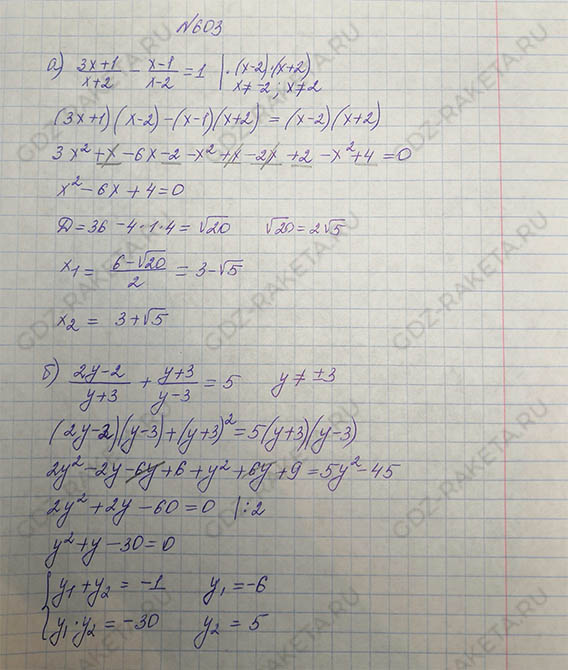 №603
а) (3x+1)/(x+2) - (x-1)/(x-2) = 1 | ·(x-2)·(x+2)
x≠-2; x≠2
(3x+1)(x-2)-(x-1)(x+2) = (x-2)(x+2)
3x²+x-6x-2-x²+x-2x+2-x²+4=0
x²-6x+4=0
Д=36-4·1·4=√20 √20=2√5
x₁= (6-√20)/2 = 3-√5
x₂ = 3+√5
б) (2y-2)/(y+3) + (y+3)/(y-3) = 5 y≠±3
(2y-2)(y-3)+(y+3)²=5(y+3)(y-3)
2y²-2y-6y+6+y²+6y+9=5y²-45
2y²+2y-60=0 |:2
y²+y-30=0
{y₁+y₂=-1 y₁=-6
y₁·y₂=-30 y₂=5
GDZ-RAKETA.RU
GDZ-RAKETA.RU
GDZ-RAKETA.RU
GDZ-RAKETA.RU
GDZ-RAKETA.RU
GDZ-RAKETA.RU
GDZ-RAKETA.RU
GDZ-RAKETA.RU
GDZ-RAKETA.RU